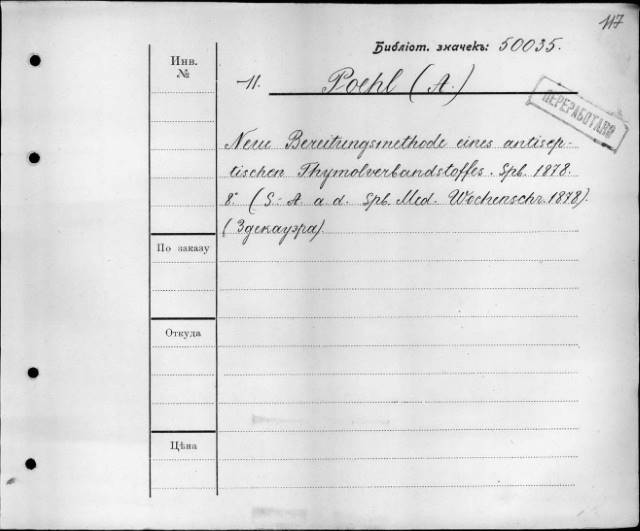 117
Библіот. значекъ: 50035.
Инв. №
11. Poehl (A.)
ПЕРЕРАБОТАНО
Neue Bereitungsmethode eines antisep-
tischen Thymolverbandstoffes. Spb. 1878.
8° (S.-A. a. d. Spb. Med. Wochenschr. 1878).
(Здекауэра).
По заказу
Откуда
Цѣна